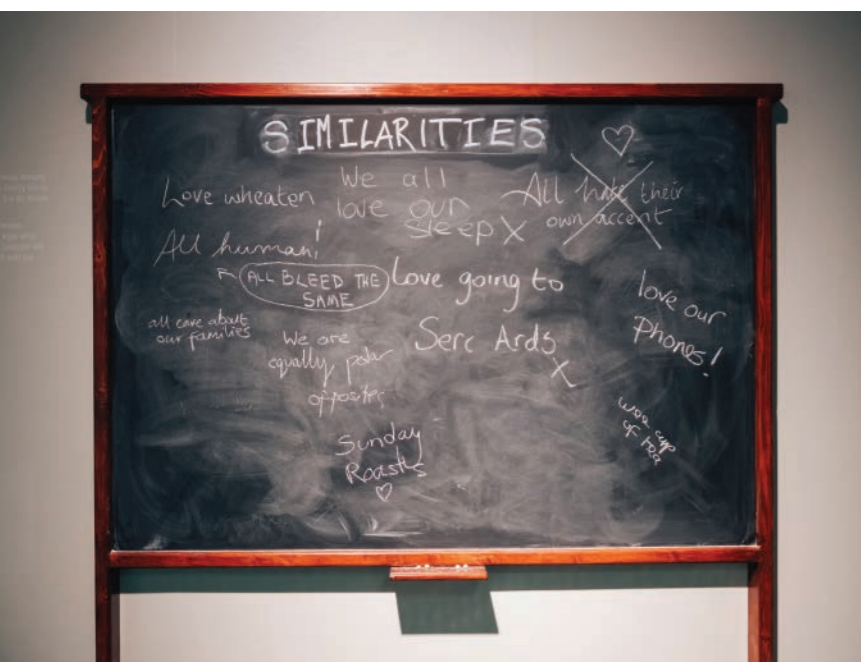 SIMILARITIES
Love wheaten
We all
love our
sleep X
All hate their
own accent
All human!
ALL BLEED THE
SAME
Love going to
Serc Ards
X
love our
Phones!
all care about
our families
We are
equally polar
opposites
wee cup
of tea
Sunday
Roasts